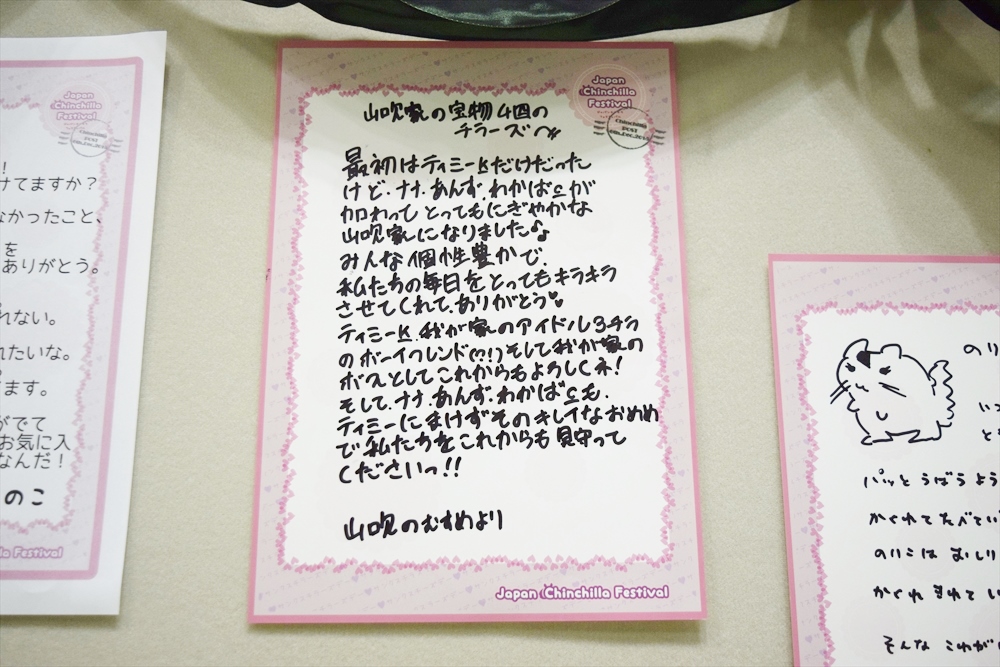 !
けてますか?
なかったこと、
を
ありがとう。
れない。
れたいな。
ます。
がでて
お気に入
なんだ!
のこ
Japan
Chinchilla
Festival
Festival
Japan
Chinchilla
Festival
Chinchilla
POST
山吹家の宝物4匹の
チラーズへ
最初はティミーkだけだった
けど、ナナ、あんず、わかばcが
加わってとってもにぎやかな
山吹家になりました♪
みんな個性豊かで、
私たちの毎日をとってもキラキラ
させてくれて、ありがとう♥
ティミーk、我が家のアイドル3チラ
のボーイフレンド(?!)そして我が家の
ボスとしてこれからもよろしくネ!
そして、ナナ、あんず、わかばcも、
ティミーにまけずそのキレイなおめめ
で私たちをこれからも見守って
くださいっ!!
山吹のむすめより
Japan Chinchilla Festival
のり
いつ
と
パッとうばうよう
かくれてたべてい
のりこはおしり
かくれきれてい
そんなこれが